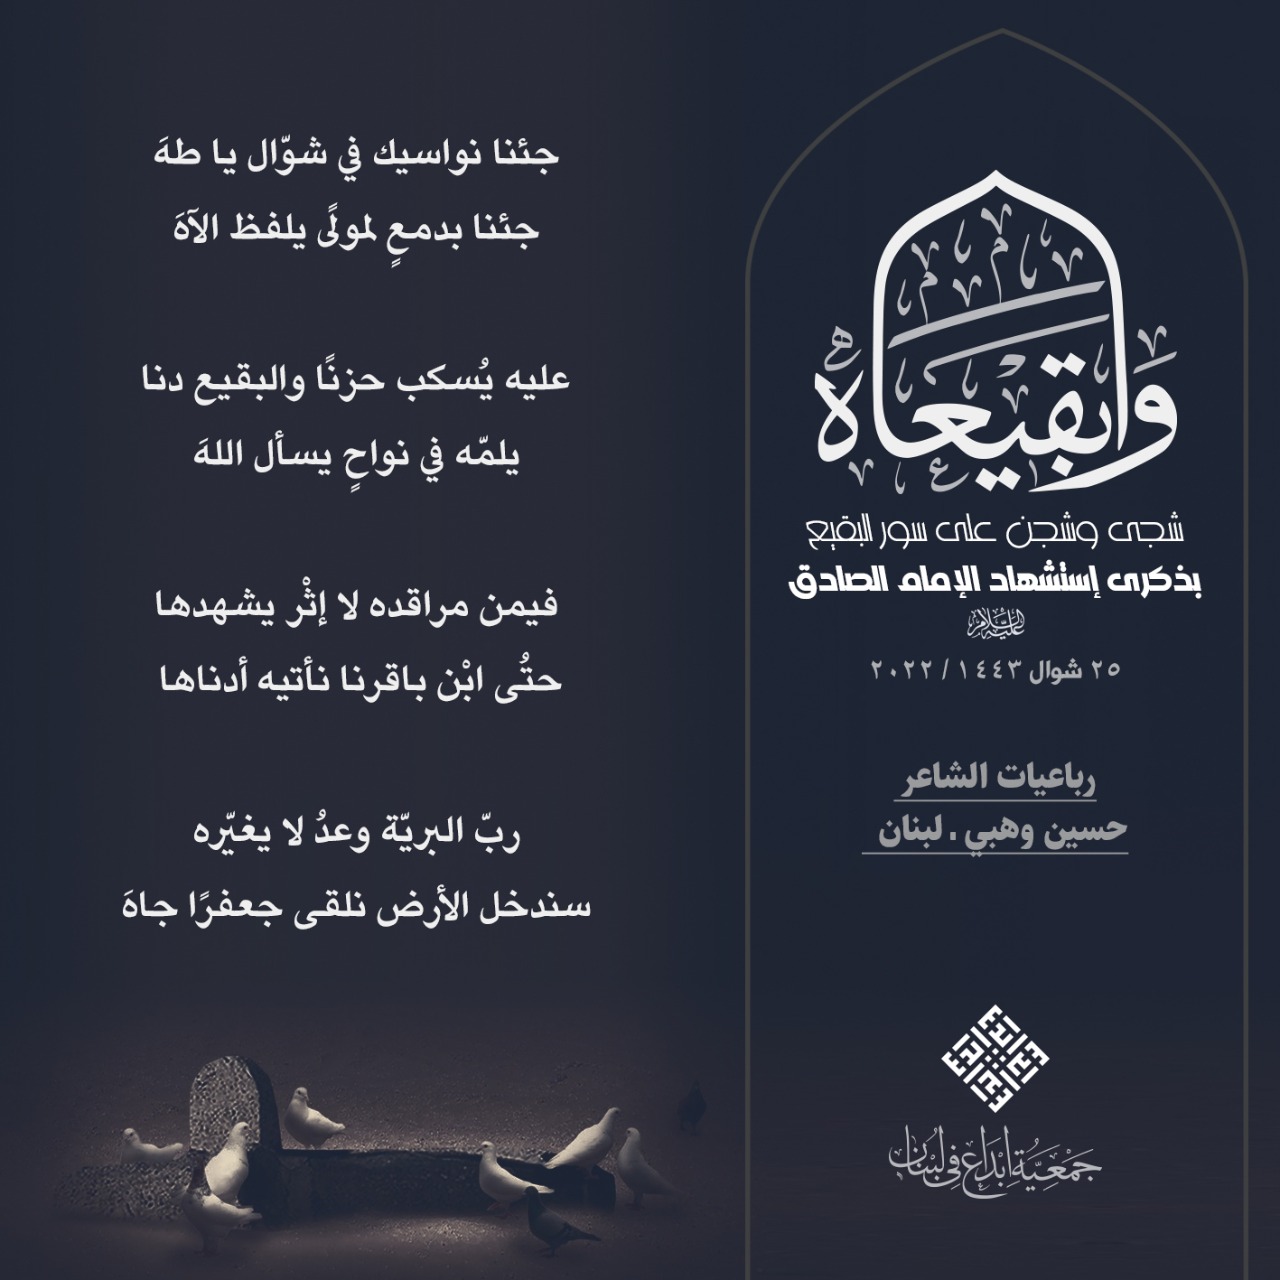 وابقيعاه
شجى وشجن على سور البقيع
بذكرى إستشهاد الإمام الصادق
عليه السلام
٢٥ شوال ١٤٤٣ / ٢٠٢٢
رباعيات الشاعر
حسين وهبي . لبنان
جَمْعِيَّةُ إِبْدَاع فِي لُبْنَان
جئنا نواسيك في شوّال يا طهَ
جئنا بدمعٍ لمولًى يلفظ الآهَ
عليه يُسكب حزنًا والبقيع دنا
يلمّه في نواحٍ يسأل اللهَ
فيمن مراقده لا إثْر يشهدها
حتُى ابْن باقرنا نأتيه أدناها
ربّ البريّة وعدُ لا يغيّره
سندخل الأرض نلقى جعفرًا جاهَ